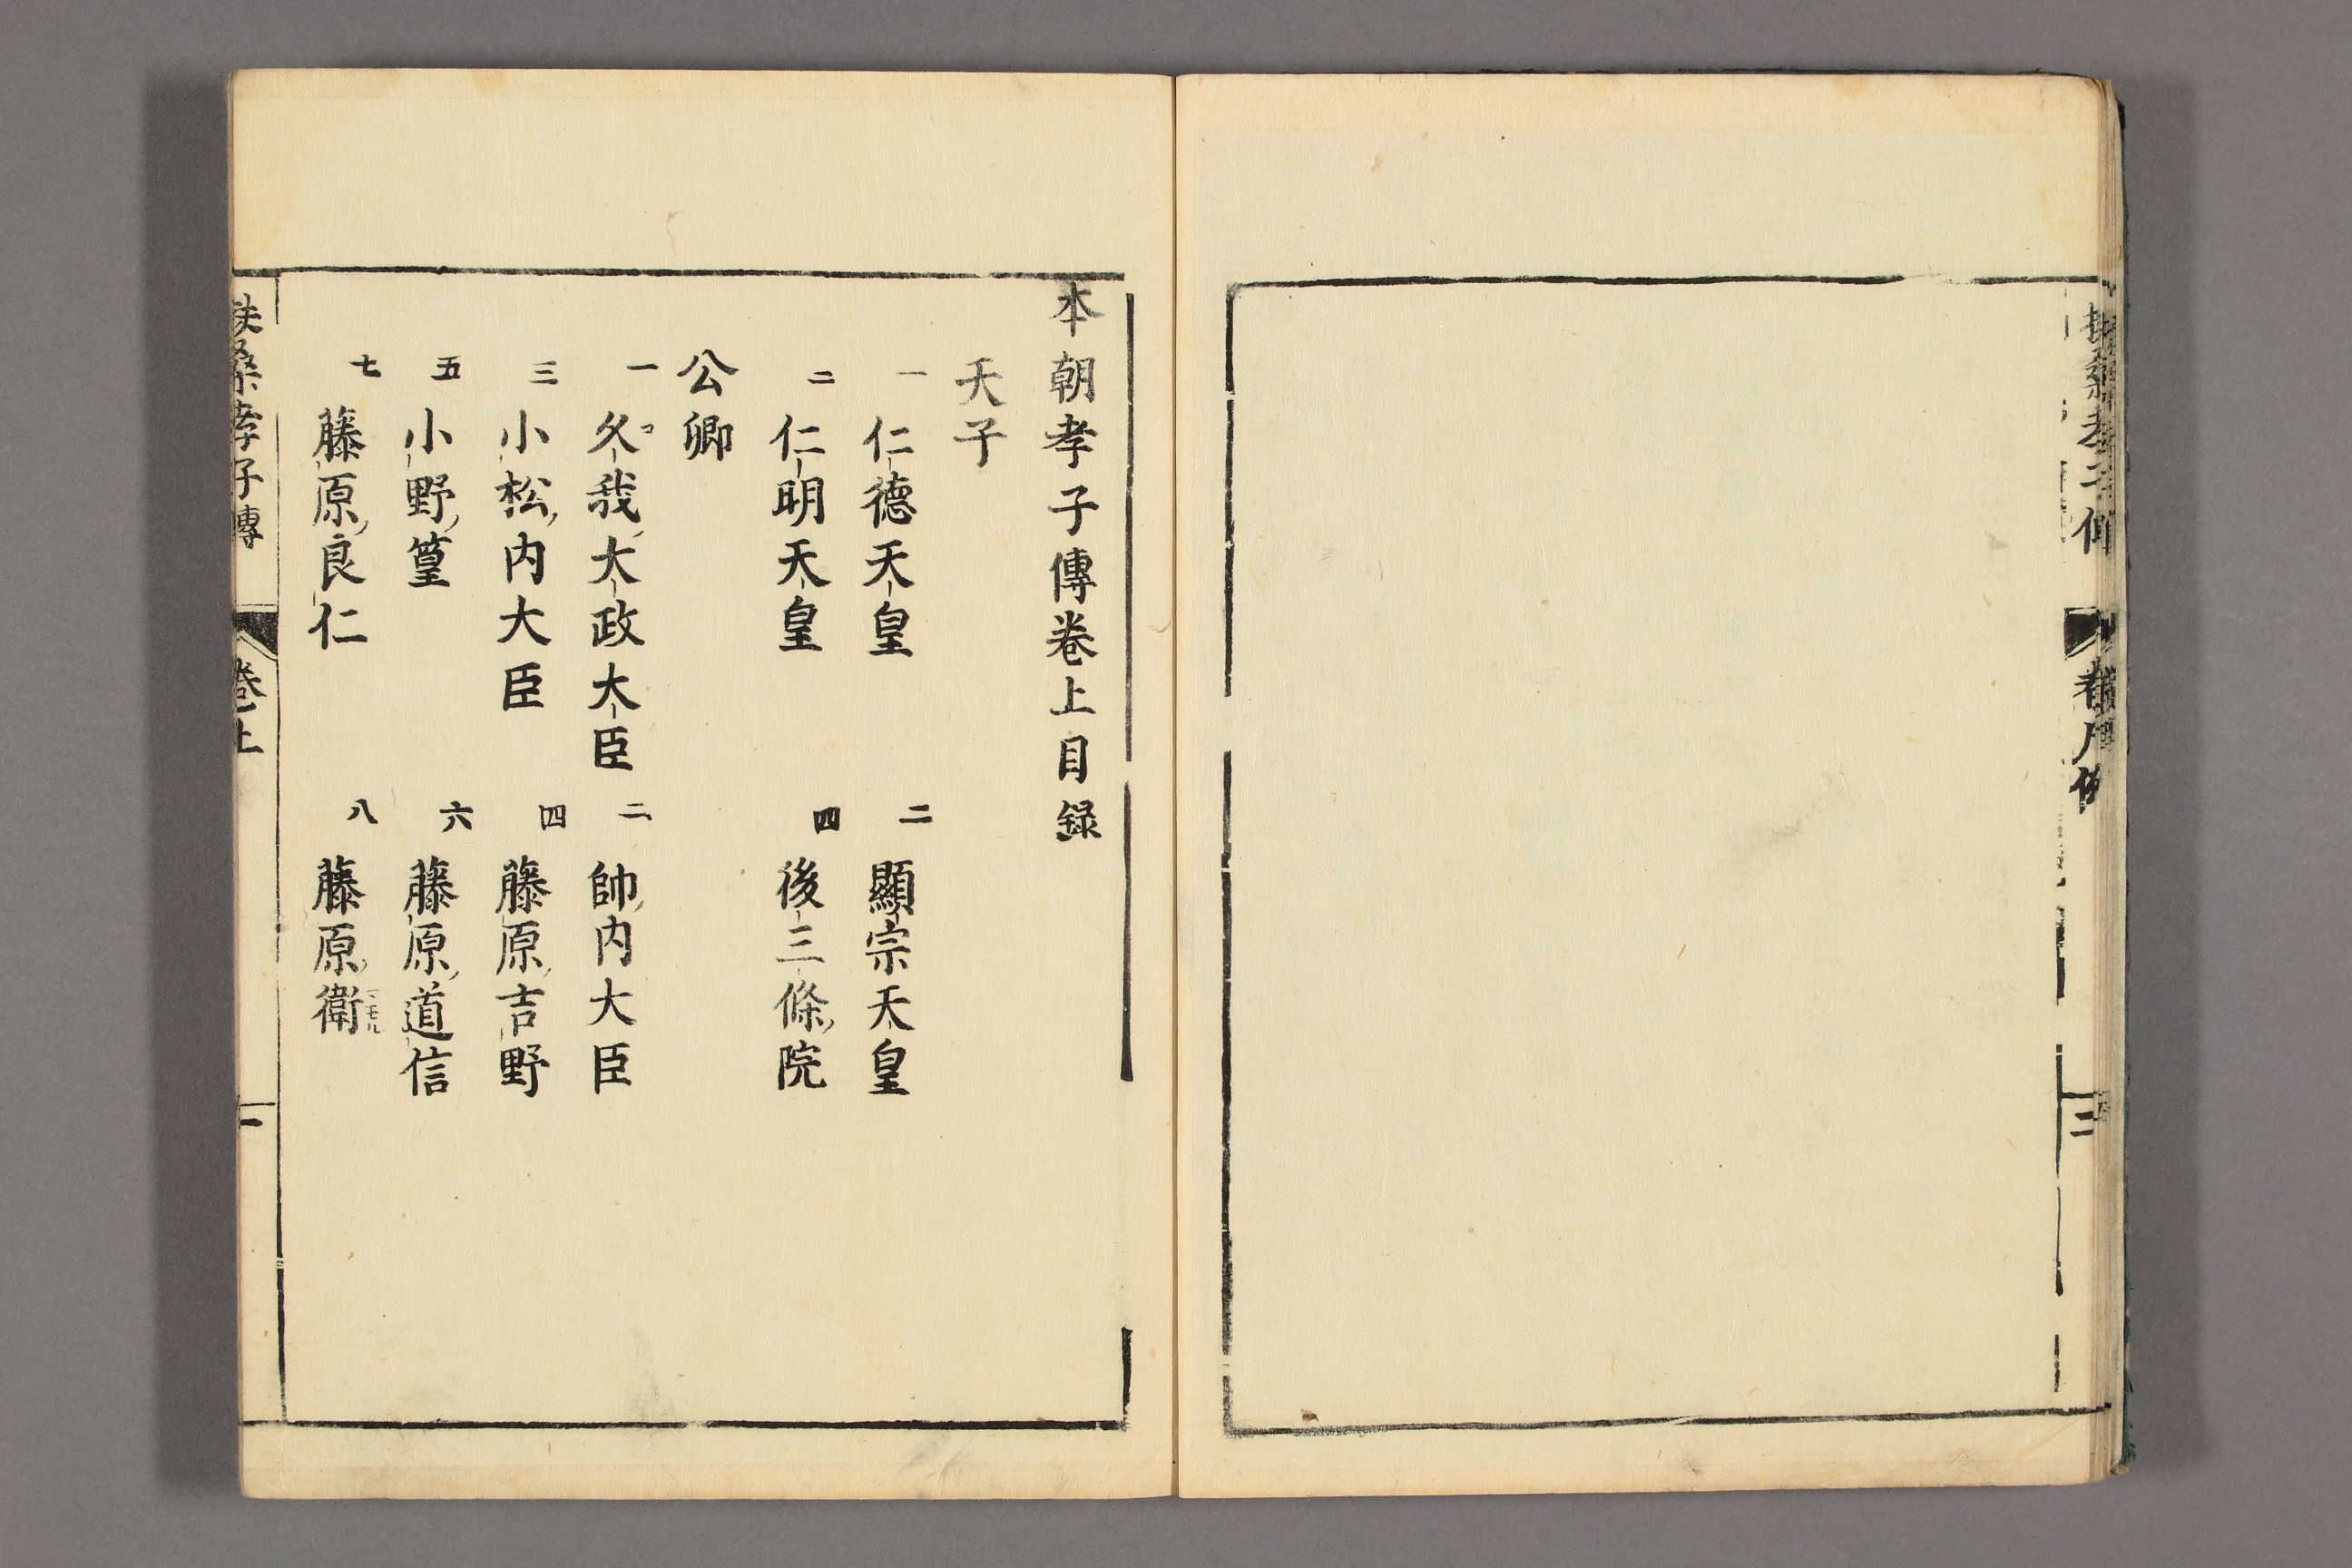 本朝孝子傳卷上目録
天子
一 仁德天皇
二 顯宗天皇
二 仁明天皇
四 後三條院
公卿
一 久我大政大臣
二 帥内大臣
三 小松内大臣
四 藤原吉野
五 小野篁
六 藤原道信
七 藤原良仁
八 藤原衛
扶桑孝子傳 卷上 一